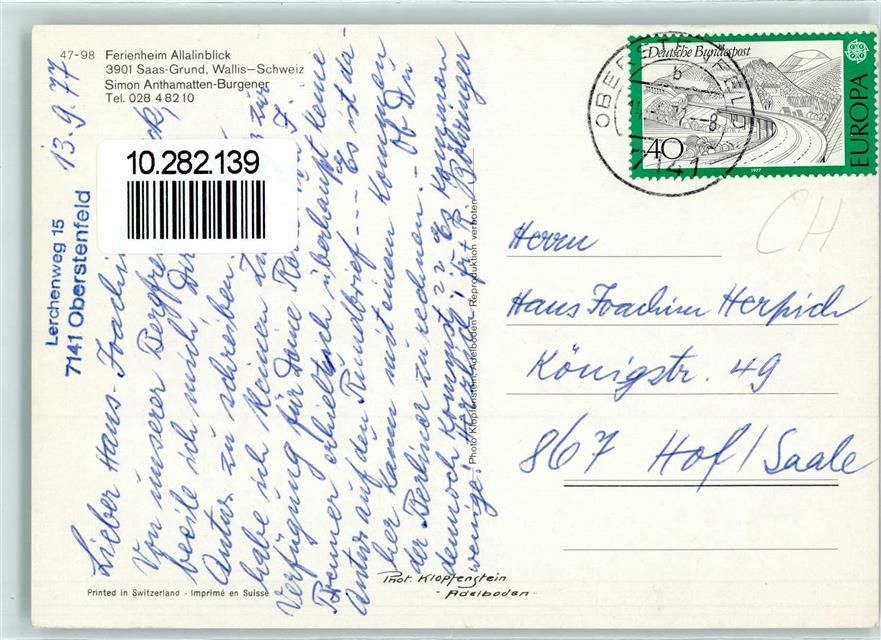 47-98 Ferienheim Allalinblick
3901 Saas-Grund, Wallis–Schweiz
Simon Anthamatten-Burgener
Tel. 028 4 82 10
10.282.139
Lerchenweg 15
7141 Oberstenfeld
13.9.77
Lieber Hans-Joachi
Von unserer Bergfre
beeile ich mich Dir
Antw. zu schreiben.
habe ich keinen zur
Verfügung für Deine F.
Brenner erhielt ich überhaupt keine
Antw. auf den Rundbrief --- Es ist da-
her kaum mit einem kommen
der Berliner zu rechnen. - Ob Du
dennoch kommst ?? Es kommen
wenige! Herzlich, R. Böhringer
Photo Klopfenstein, Adelboden – Reproduktion verboten
Deutsche Bundespost
EUROPA
40
1977
OBERSTENFELD
b
-8
7141
CH
Herrn
Hans Joachim Herpich
Königstr. 49
867 Hof/Saale
Phot. Klopfenstein
- Adelboden -
Printed in Switzerland - Imprimé en Suisse